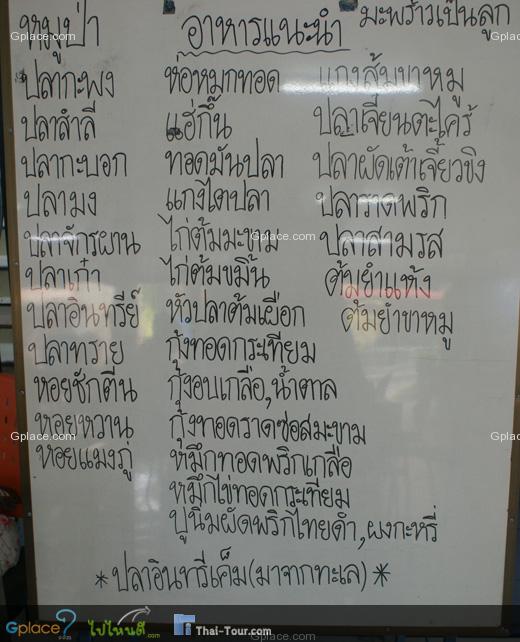 หมูป่า อาหารแนะนำ มะพร้าวเป็นลูก
ปลากะพง ห่อหมกทอด แกงส้มขาหมู
ปลาสำลี แฮ่กึ๊น ปลาเจี๋ยนตะไคร้
ปลากะบอก ทอดมันปลา ปลาผัดเต้าเจี้ยวขิง
ปลามง แกงไตปลา ปลาราดพริก
ปลาจักรผาน ไก่ต้มมะขาม ปลาสามรส
ปลาเก๋า ไก่ต้มขมิ้น ต้มยำแห้ง
ปลาอินทรีย์ หัวปลาต้มเผือก ต้มยำขาหมู
ปลาทราย กุ้งทอดกระเทียม
หอยชักตีน กุ้งอบเกลือ,น้ำตาล
หอยหวาน กุ้งทอดราดซอสมะขาม
หอยแมงภู่ หมึกทอดพริกเกลือ
หมึกไข่ทอดกระเทียม
ปูนิ่มผัดพริกไทยดำ,ผงกะหรี่
*ปลาอินทรีเค็ม(มาจากทะเล)*
Gplace ไปไหนดี.com Thai-Tour.com
Gplace.com